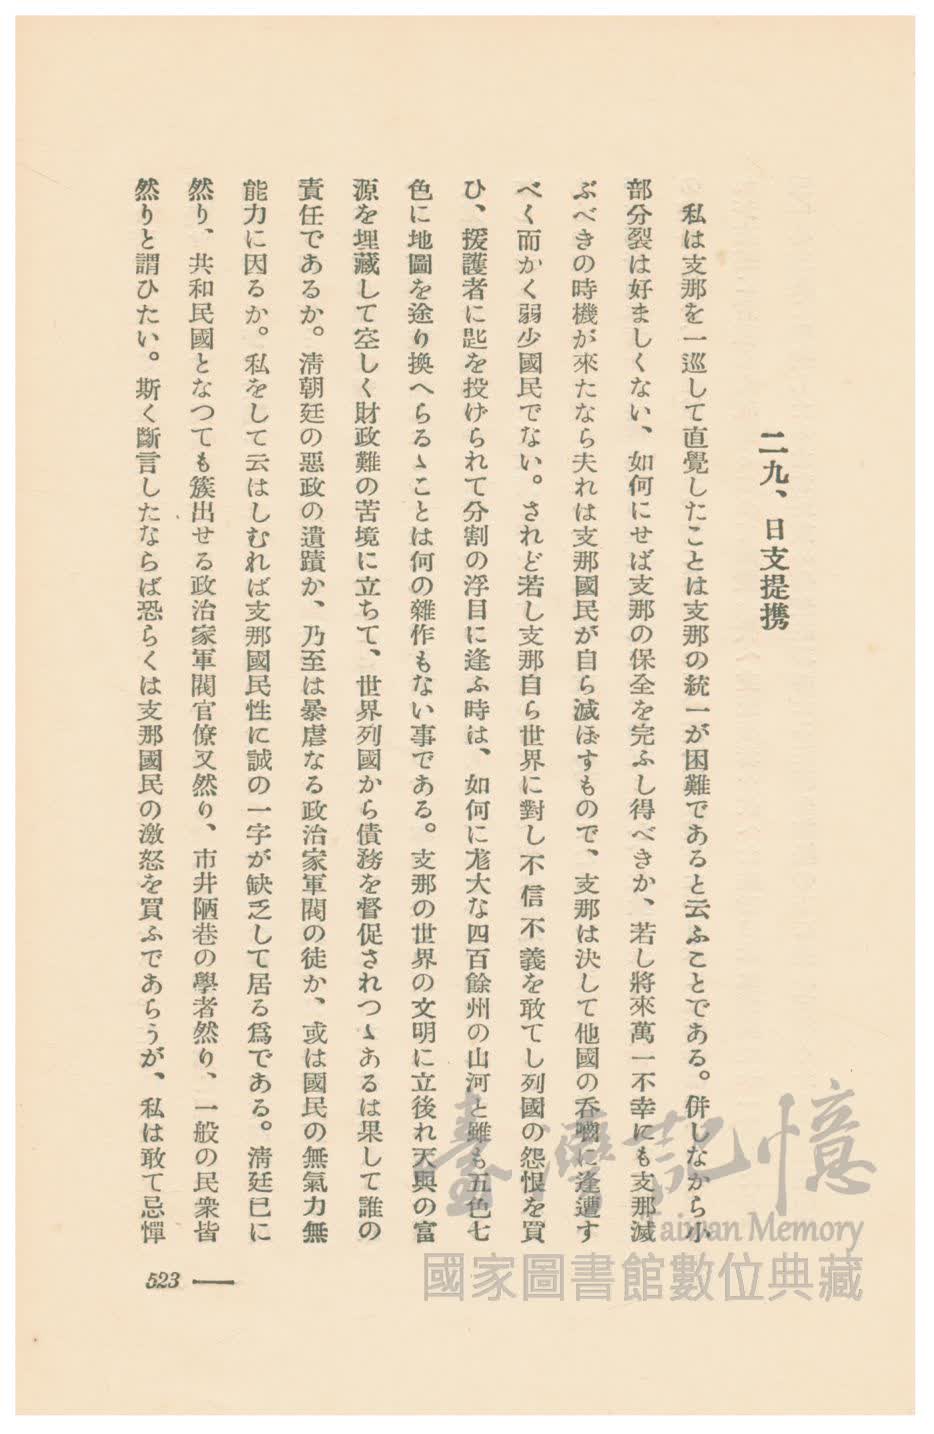 二九、日支提携
私は支那を一巡して直覺したことは支那の統一が困難であると云ふことである。併しなから小
部分裂は好ましくない、如何にせば支那の保全を完ふし得べきか、若し將來萬一不幸にも支那滅
ぶべきの時機が來たなら夫れは支那國民が自ら滅ぼすもので、支那は決して他國の呑噬に逢遭す
べく而かく弱少國民でない。されど若し支那自ら世界に對し不信不義を敢てし列國の怨恨を買
ひ、援護者に匙を投げられて分割の浮目に逢ふ時は、如何に尨大な四百餘州の山河と雖も五色七
色に地圖を途り換へらるゝことは何の雜作もない事である。支那の世界の文明に立後れ天與の富
源を埋藏して空しく財政難の苦境に立ちて、世界列國から債務を督促されつゝあるは果して誰の
責任であるか。淸朝廷の惡政の遺蹟か、乃至は暴虐なる政治家軍閥の徒か、或は國民の無氣力無
能力に因るか。私をして云はしむれば支那國民性に誠の一字が缺乏して居る爲である。淸廷已に
然り、共和民國となつても簇出せる政治家軍閥官僚又然り、市井陋巷の學者然り、一般の民衆皆
然りと謂ひたい。斯く斷言したならば恐らくは支那國民の激怒を買ふであらうが、私は敢て忌憚
523
臺灣記憶
Taiwan Memory
國家圖書館數位典藏